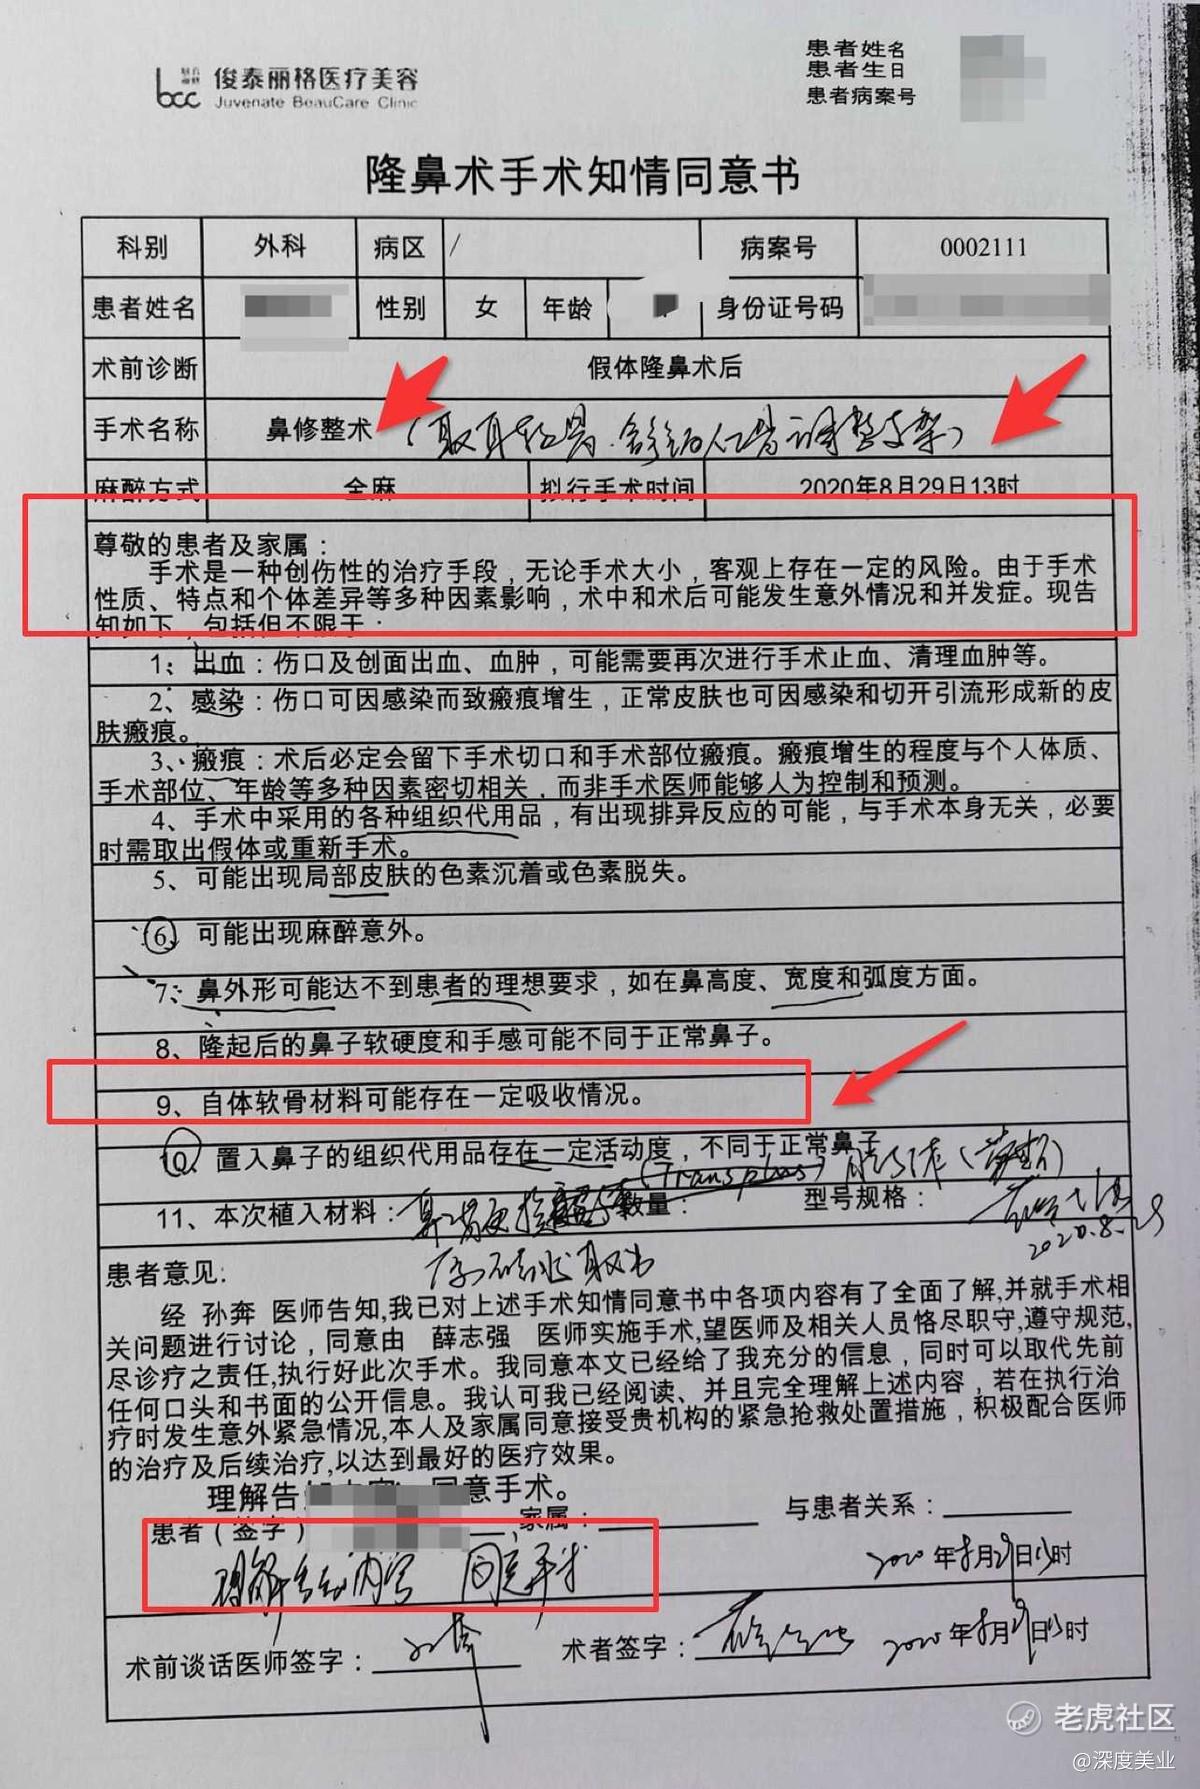 bcc 俊泰丽格医疗美容
Juvenate BeauCare Clinic
患者姓名
患者生日
患者病案号
隆鼻术手术知情同意书
科别 外科 病区 / 病案号 0002111
患者姓名 性别 女 年龄 身份证号码
术前诊断 假体隆鼻术后
手术名称 鼻修整术 (取耳软骨、 调整支架)
麻醉方式 全麻 拟行手术时间 2020年8月29日13时
尊敬的患者及家属：
手术是一种创伤性的治疗手段，无论手术大小，客观上存在一定的风险。由于手术
性质、特点和个体差异等多种因素影响，术中和术后可能发生意外情况和并发症。现告
知如下，包括但不限于：
1、出血：伤口及创面出血、血肿，可能需要再次进行手术止血、清理血肿等。
2、感染：伤口可因感染而致瘢痕增生，正常皮肤也可因感染和切开引流形成新的皮
肤瘢痕。
3、瘢痕：术后必定会留下手术切口和手术部位瘢痕。瘢痕增生的程度与个人体质、
手术部位、年龄等多种因素密切相关，而非手术医师能够人为控制和预测。
4、手术中采用的各种组织代用品，有出现排异反应的可能，与手术本身无关，必要
时需取出假体或重新手术。
5、可能出现局部皮肤的色素沉着或色素脱失。
6、可能出现麻醉意外。
7、鼻外形可能达不到患者的理想要求，如在鼻高度、宽度和弧度方面。
8、隆起后的鼻子软硬度和手感可能不同于正常鼻子。
9、自体软骨材料可能存在一定吸收情况。
10、置入鼻子的组织代用品存在一定活动度，不同于正常鼻子
11、本次植入材料： 数量： 型号规格：
2020.8.29
患者意见:
经 孙奔 医师告知,我已对上述手术知情同意书中各项内容有了全面了解,并就手术相
关问题进行讨论，同意由 薛志强 医师实施手术,望医师及相关人员恪尽职守,遵守规范,
尽诊疗之责任,执行好此次手术。我同意本文已经给了我充分的信息，同时可以取代先前
任何口头和书面的公开信息。我认可我已经阅读、并且完全理解上述内容，若在执行治
疗时发生意外紧急情况,本人及家属同意接受贵机构的紧急抢救处置措施，积极配合医师
的治疗及后续治疗,以达到最好的医疗效果。
理解告 意手术。
患者（签字） ,家属： 与患者关系：
理解告知内容 同意手术 2020年8月29日13时
术前谈话医师签字： 术者签字： 2020年8月29日13时
老虎社区
@深度美业